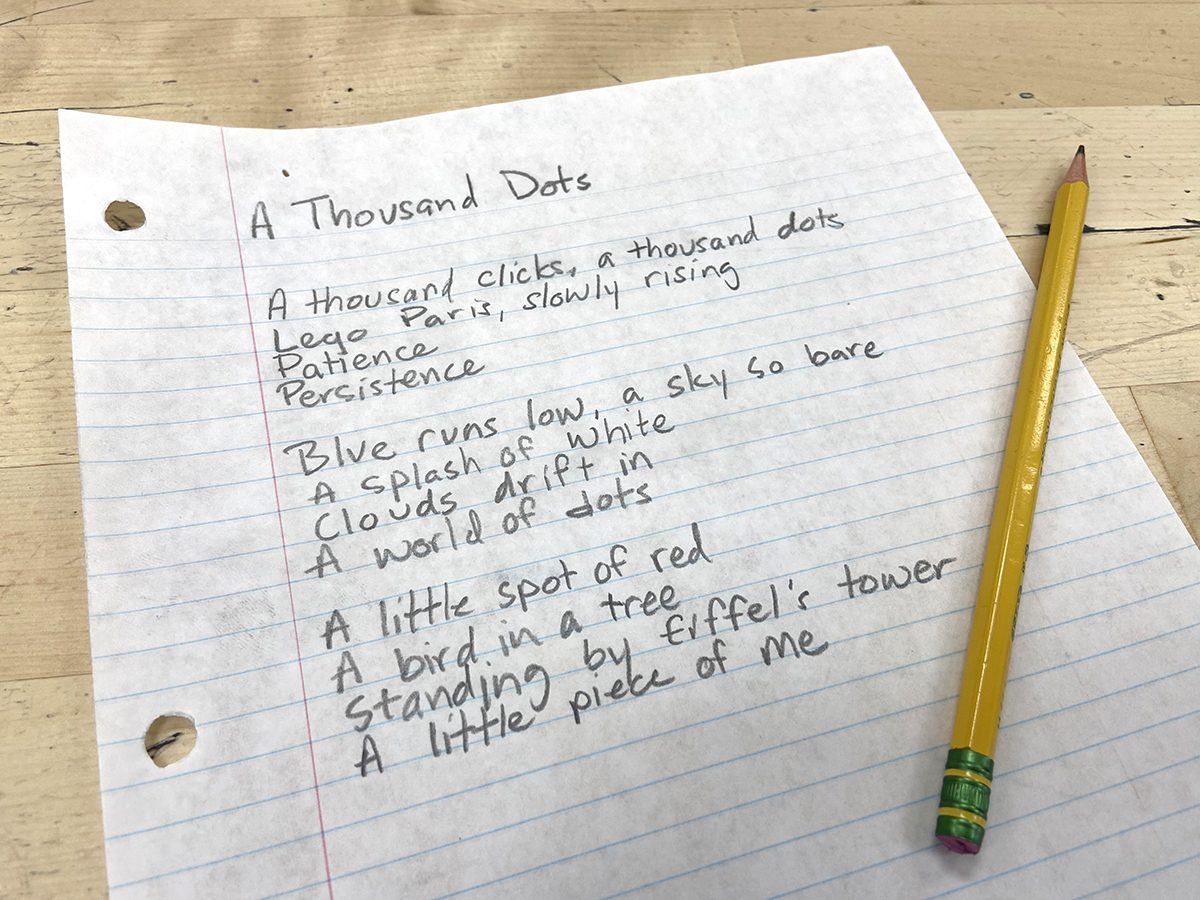 A Thousand Dots
A thousand clicks, a thousand dots
Lego Paris, slowly rising
Patience
Persistence
Blue runs low, a sky so bare
A splash of white
Clouds drift in
A world of dots
A little spot of red
A bird in a tree
Standing by Eiffel's tower
A little piece of me